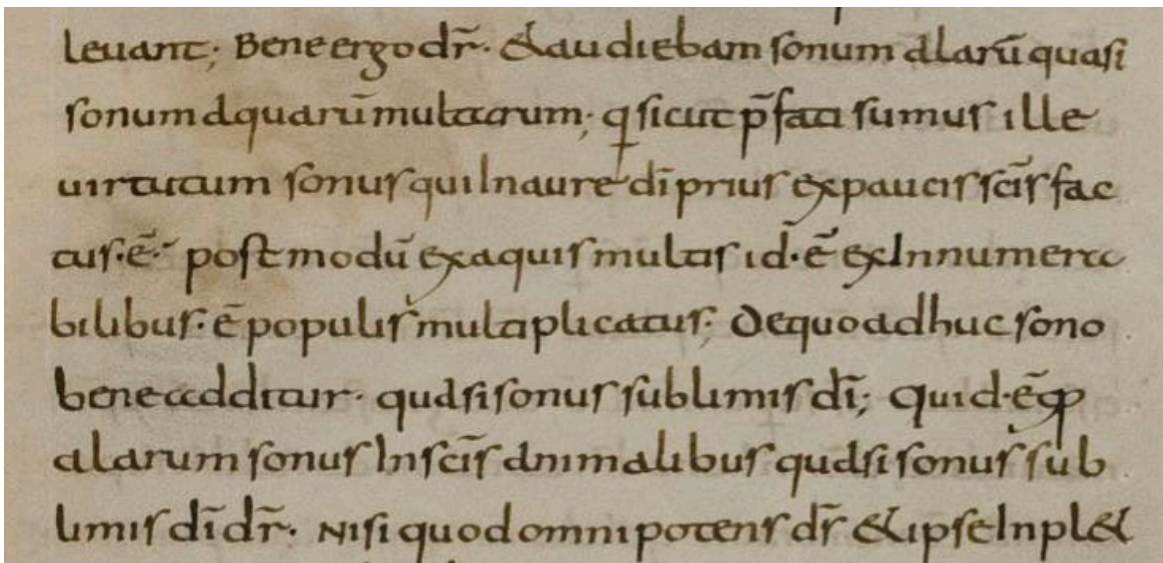 leuant; Bene ergo dr̄· & audiebam sonum alarū quasi
sonum aquarū multarum; q̨ sicut p̄fati sumus ille
uirtutum sonus qui In aure dī prius ex paucis scīs fac
tus·ē· postmodū ex aquis multis id·ē ex Innumera
bilibus·ē populis multiplicatus; De quo adhuc sono
bene additur· quasi sonus sublimis dī; Quid·ē qp
alarum sonus In scīs animalibus quasi sonus sub
limis dī dr̄· Nisi quod omnipotens ds̄ & ipse Inpl&